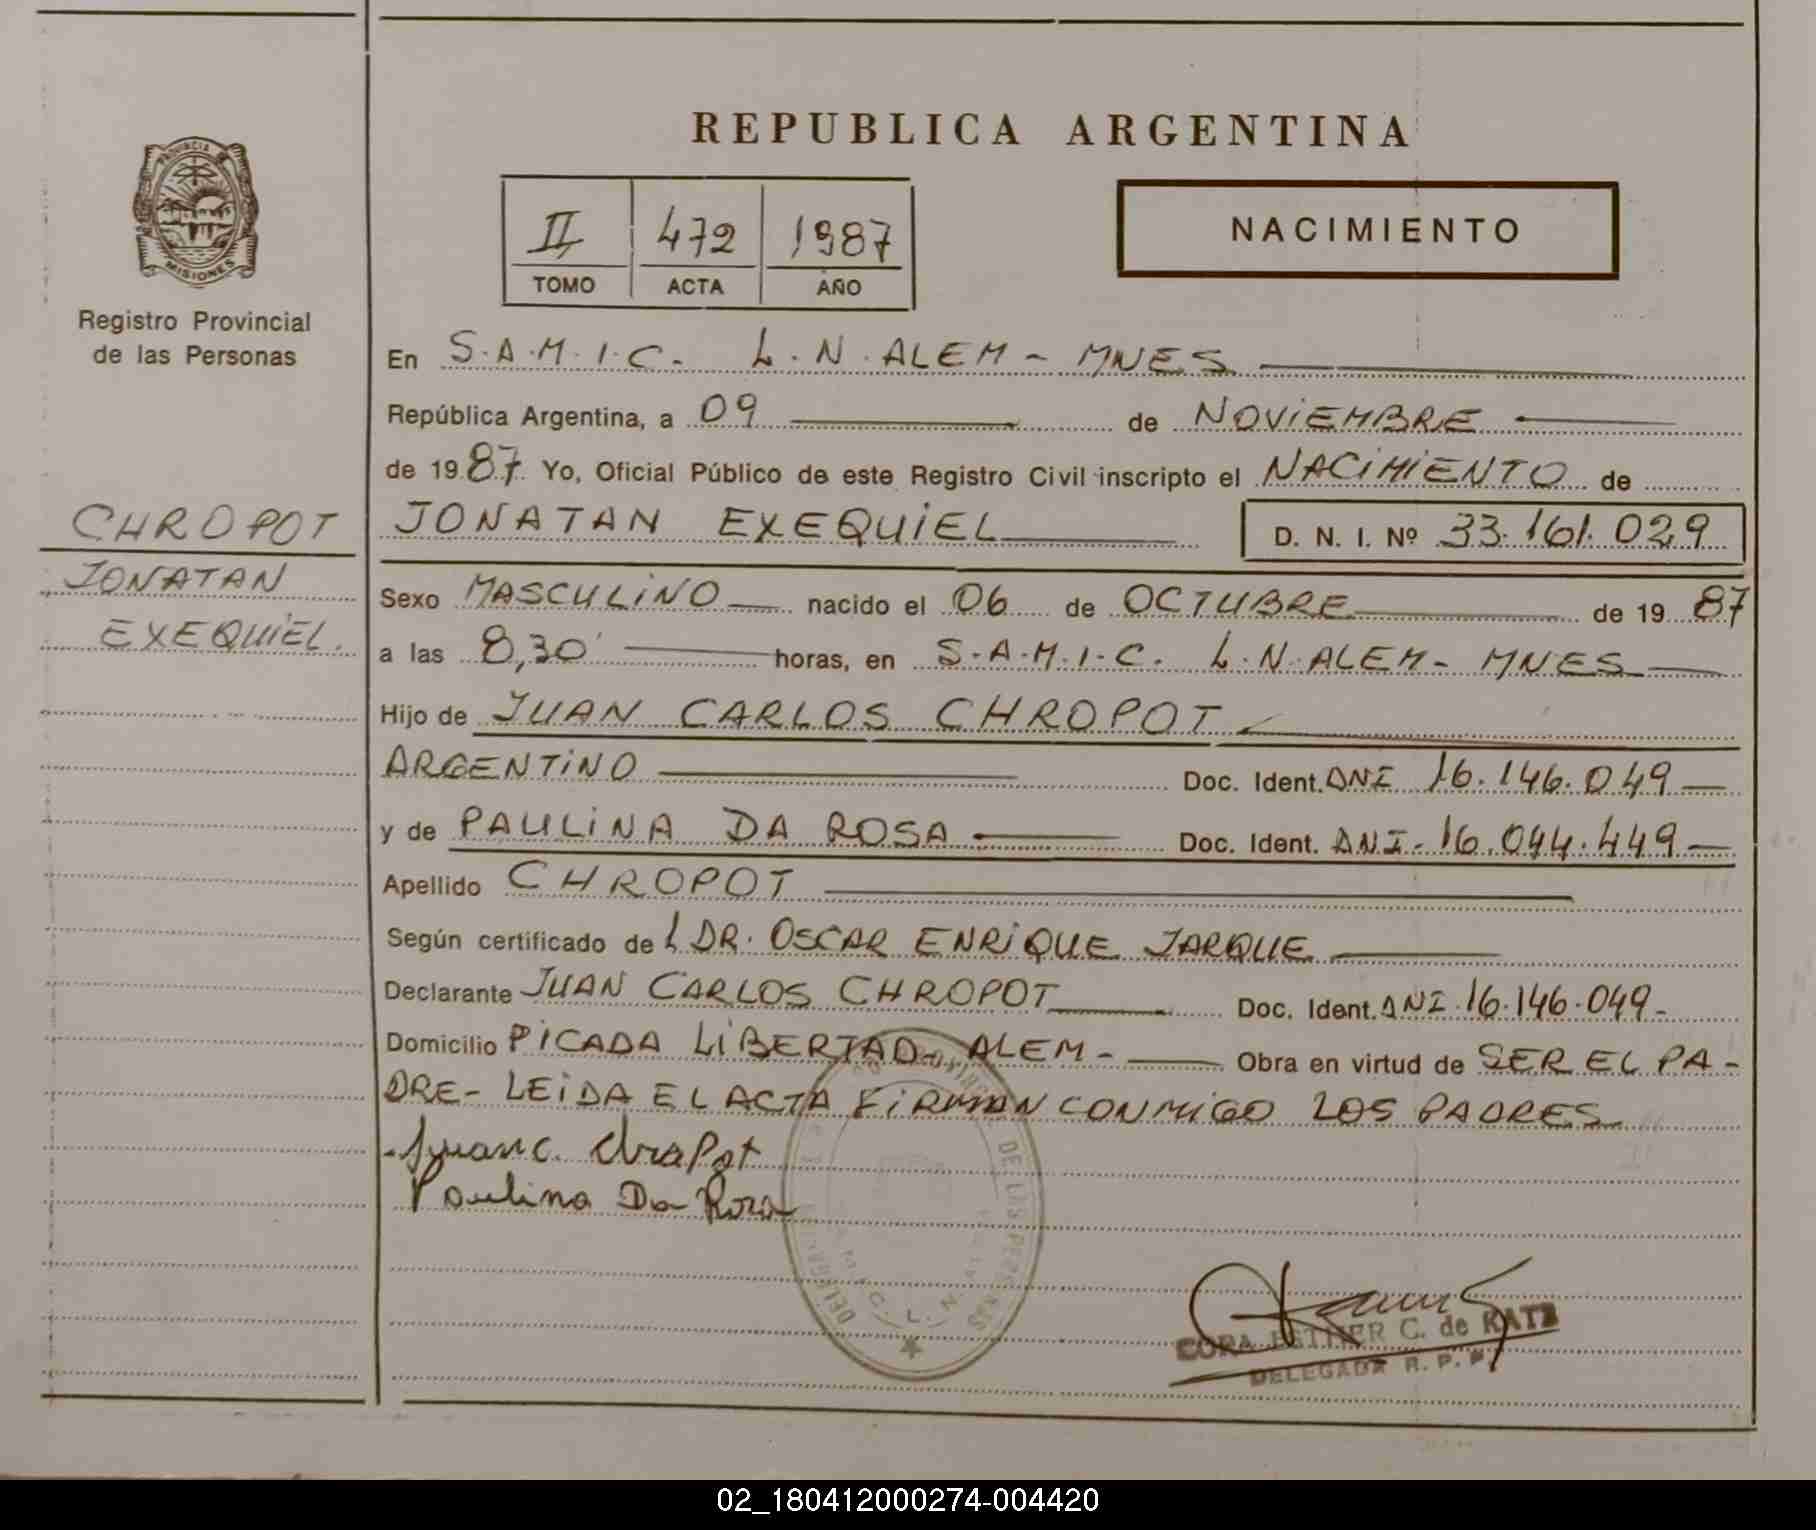 REPUBLICA ARGENTINA
PROVINCIA DE
MISIONES
Registro Provincial
de las Personas
II 472 1987
TOMO ACTA AÑO
NACIMIENTO
En S.A.M.I.C. L.N.ALEM - MNES
República Argentina, a 09 de NOVIEMBRE
de 1987. Yo, Oficial Público de este Registro Civil inscripto el NACIMIENTO de
CHROPOT
JONATAN
EXEQUIEL.
JONATAN EXEQUIEL D. N. I. Nº 33.161.029
Sexo MASCULINO nacido el 06 de OCTUBRE de 1987
a las 8,30 horas, en S.A.M.I.C. L.N.ALEM - MNES
Hijo de JUAN CARLOS CHROPOT
ARGENTINO Doc. Ident. DNI 16.146.049
y de PAULINA DA ROSA Doc. Ident. DNI - 16.044.449
Apellido CHROPOT
Según certificado de L DR. OSCAR ENRIQUE JARQUE
Declarante JUAN CARLOS CHROPOT Doc. Ident. DNI. 16.146.049-
Domicilio PICADA LIBERTAD - ALEM - Obra en virtud de SER EL PA-
DRE - LEIDA EL ACTA FIRMAN CONMIGO LOS PADRES
Juan C. ChroPot
Paulina Da Rosa
DE LAS PERSONAS
L. N.
CORA ESTHER C. de KATZ
DELEGADA R. P. P.
02_180412000274-004420